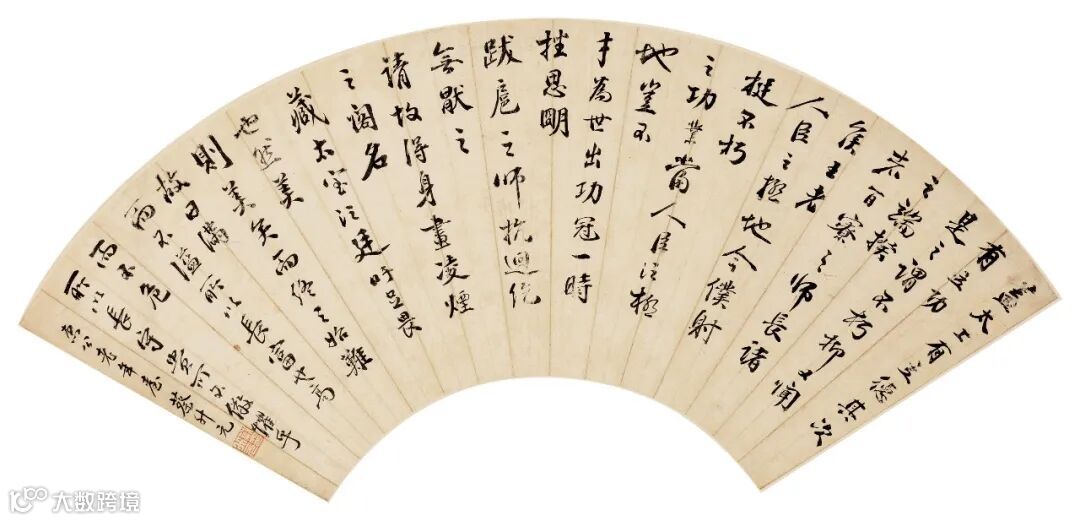 蓋太上有立德其次
有立功
是之謂不朽抑又聞
之端揆
者百寮之師長諸
矦王者
人臣之極地今僕射
挺不朽
之功業當人臣之極
地豈不
才為世出功冠一時
挫思明
跋扈之師抗迴紇
無厭之
請故得身畫凌煙
之閣名
藏太室之廷吁足畏
也然美
則美矣而終之始難
故曰滿
而不溢所以長富也高
而不危
所以長守貴可不儆懼乎
公老年臺 蔡升元
大数跨境